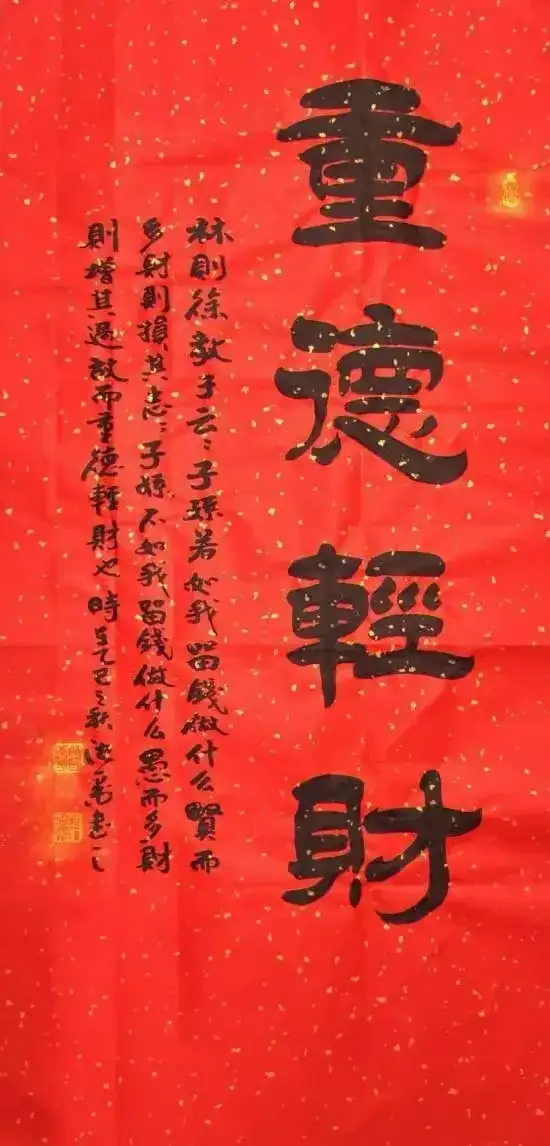 重德輕財
林則徐教子云：子孫若如我留錢做什么賢而
多財則損其志：子孫不如我留錢做什么愚而多財
則增其過故而重德輕財也時在乙巳之秋 書